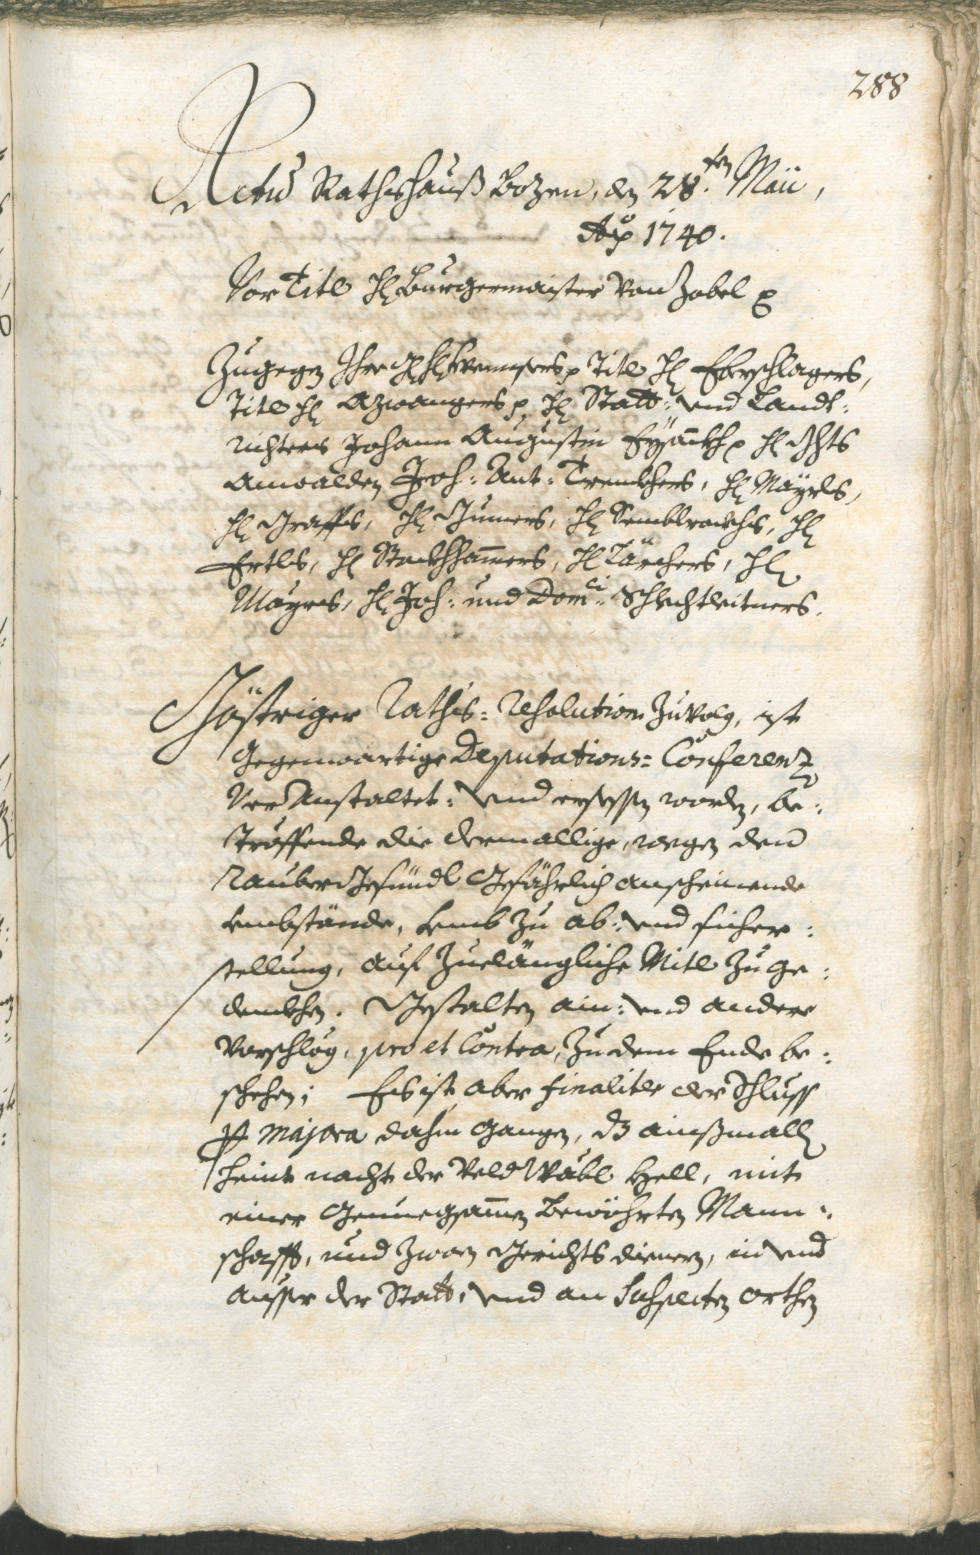 288
Actum Rathshauß Bozen, den 28.ten Maii,
Ao 1740.
Vor Titl H: Burgermaister von Zobel
Zugegen Ihro Titl H: Eberschlagers,
Titl H: Azwangers p. H: Statt- und Landt-
richters Johann Augustin p H: Ghts
Anwalden Joh: Ant: Trenkhers, H: Mayrls,
H: Graffs, H: Gumers, H: H:
Ertls, H: Stockhhamers, H: Lärchers, H:
Mayrs, H: Joh: und Domci: Schlechtleitners.
Göstriger Raths-Resolution zuvolg, ist
Gegenwärtige Deputations-Conferenz
Veranstaltet- und ersessen worden, be-
tröffende die dermallige, wegen dem
Rauber Gesündl Gefährlich anscheinende
Umbstände, umb zu ab- und sicher-
stellung, auf zuelängliche Mitl zu ge-
denkhen. Gestalten ain- und andere
Vorschlög, pro et Contra, zu dem Ende be-
schehen; Es ist aber finaliter der Schluss
per majora dahin gangen, dz ainßmalls
heint nacht der Veld Wäbl Hell, mit
einer Genuegsamen Bewöhrten Mann-
schafft, und zwar Gerichts dienern, in und
ausser der Statt, und an Suspecten orthen